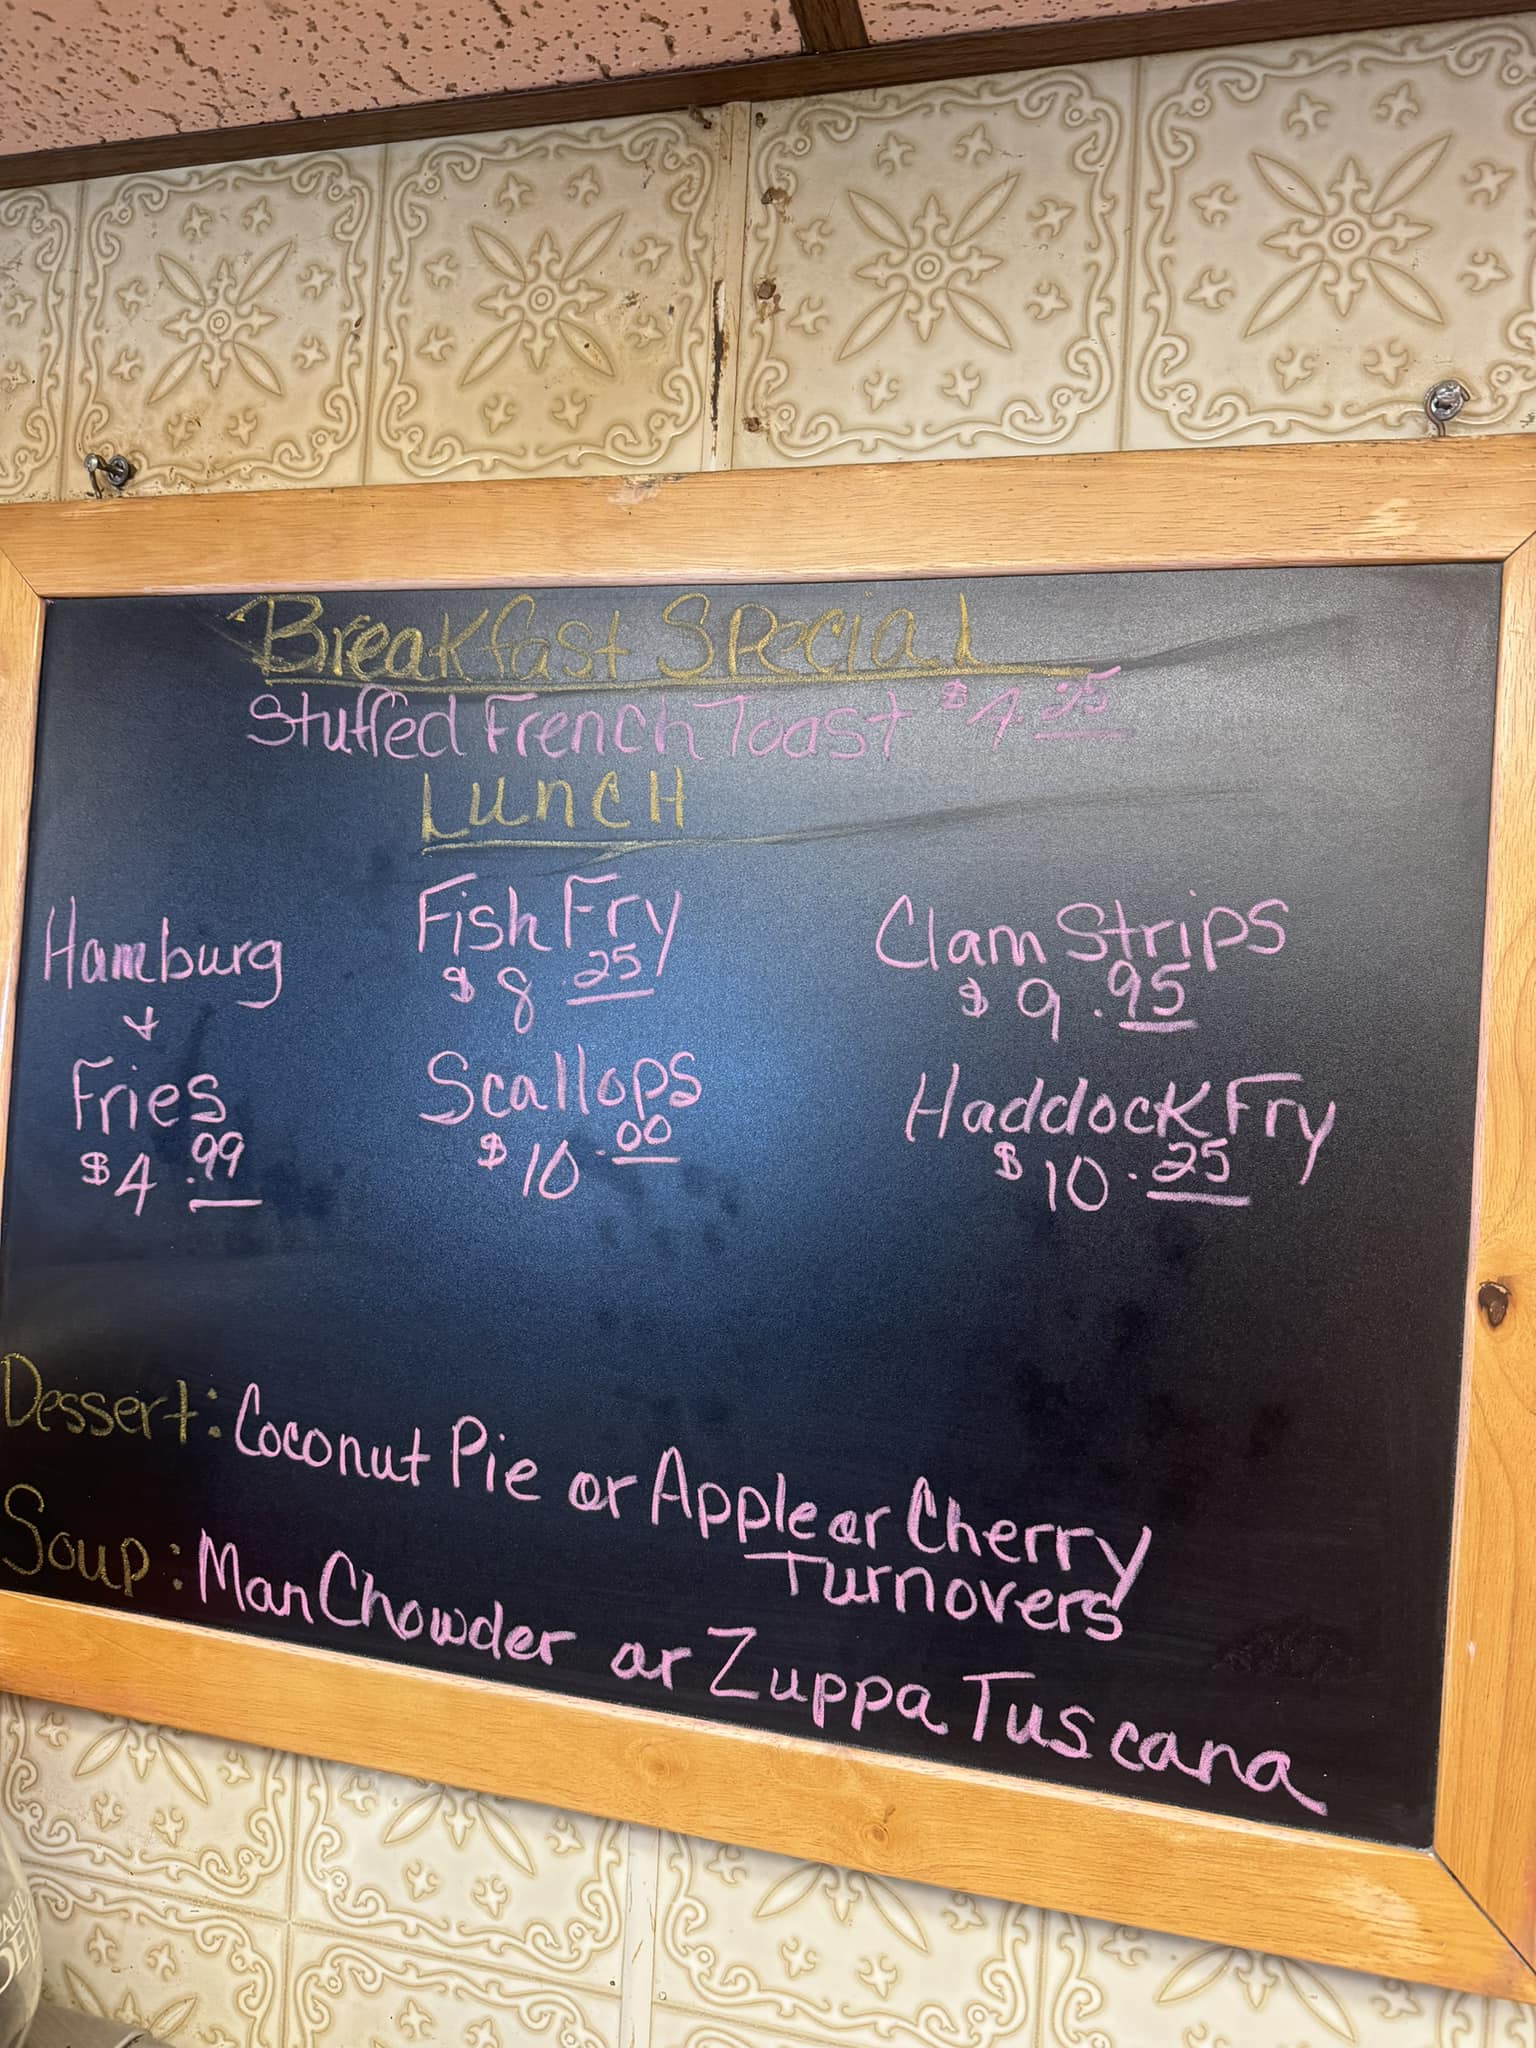 Breakfast Special
Stuffed French Toast $4.25
Lunch
Hamburg
+
Fries
$4.99
Fish Fry
$8.25
Scallops
$10.00
Clam Strips
$9.95
Haddock Fry
$10.25
Dessert: Coconut Pie or Apple or Cherry
Turnovers
Soup: Man Chowder or Zuppa Tuscana